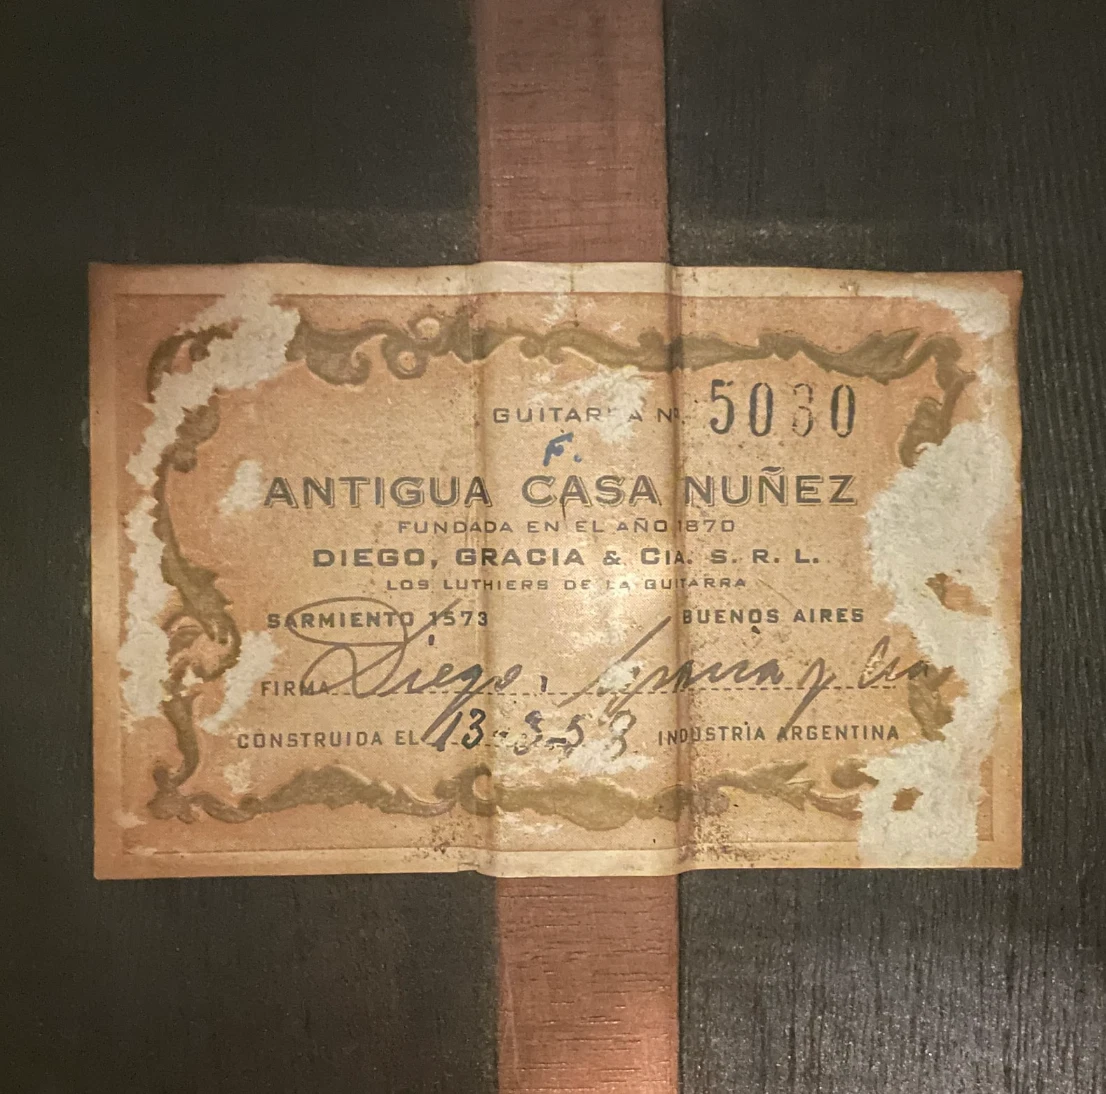 GUITARRA Nº 5030
F.
ANTIGUA CASA NUÑEZ
FUNDADA EN EL AÑO 1870
DIEGO, GRACIA & CIA. S. R. L.
LOS LUTHIERS DE LA GUITARRA
SARMIENTO 1573 BUENOS AIRES
FIRMA Diego, Gracia y Cia
CONSTRUIDA EL 13-3-53 INDUSTRIA ARGENTINA